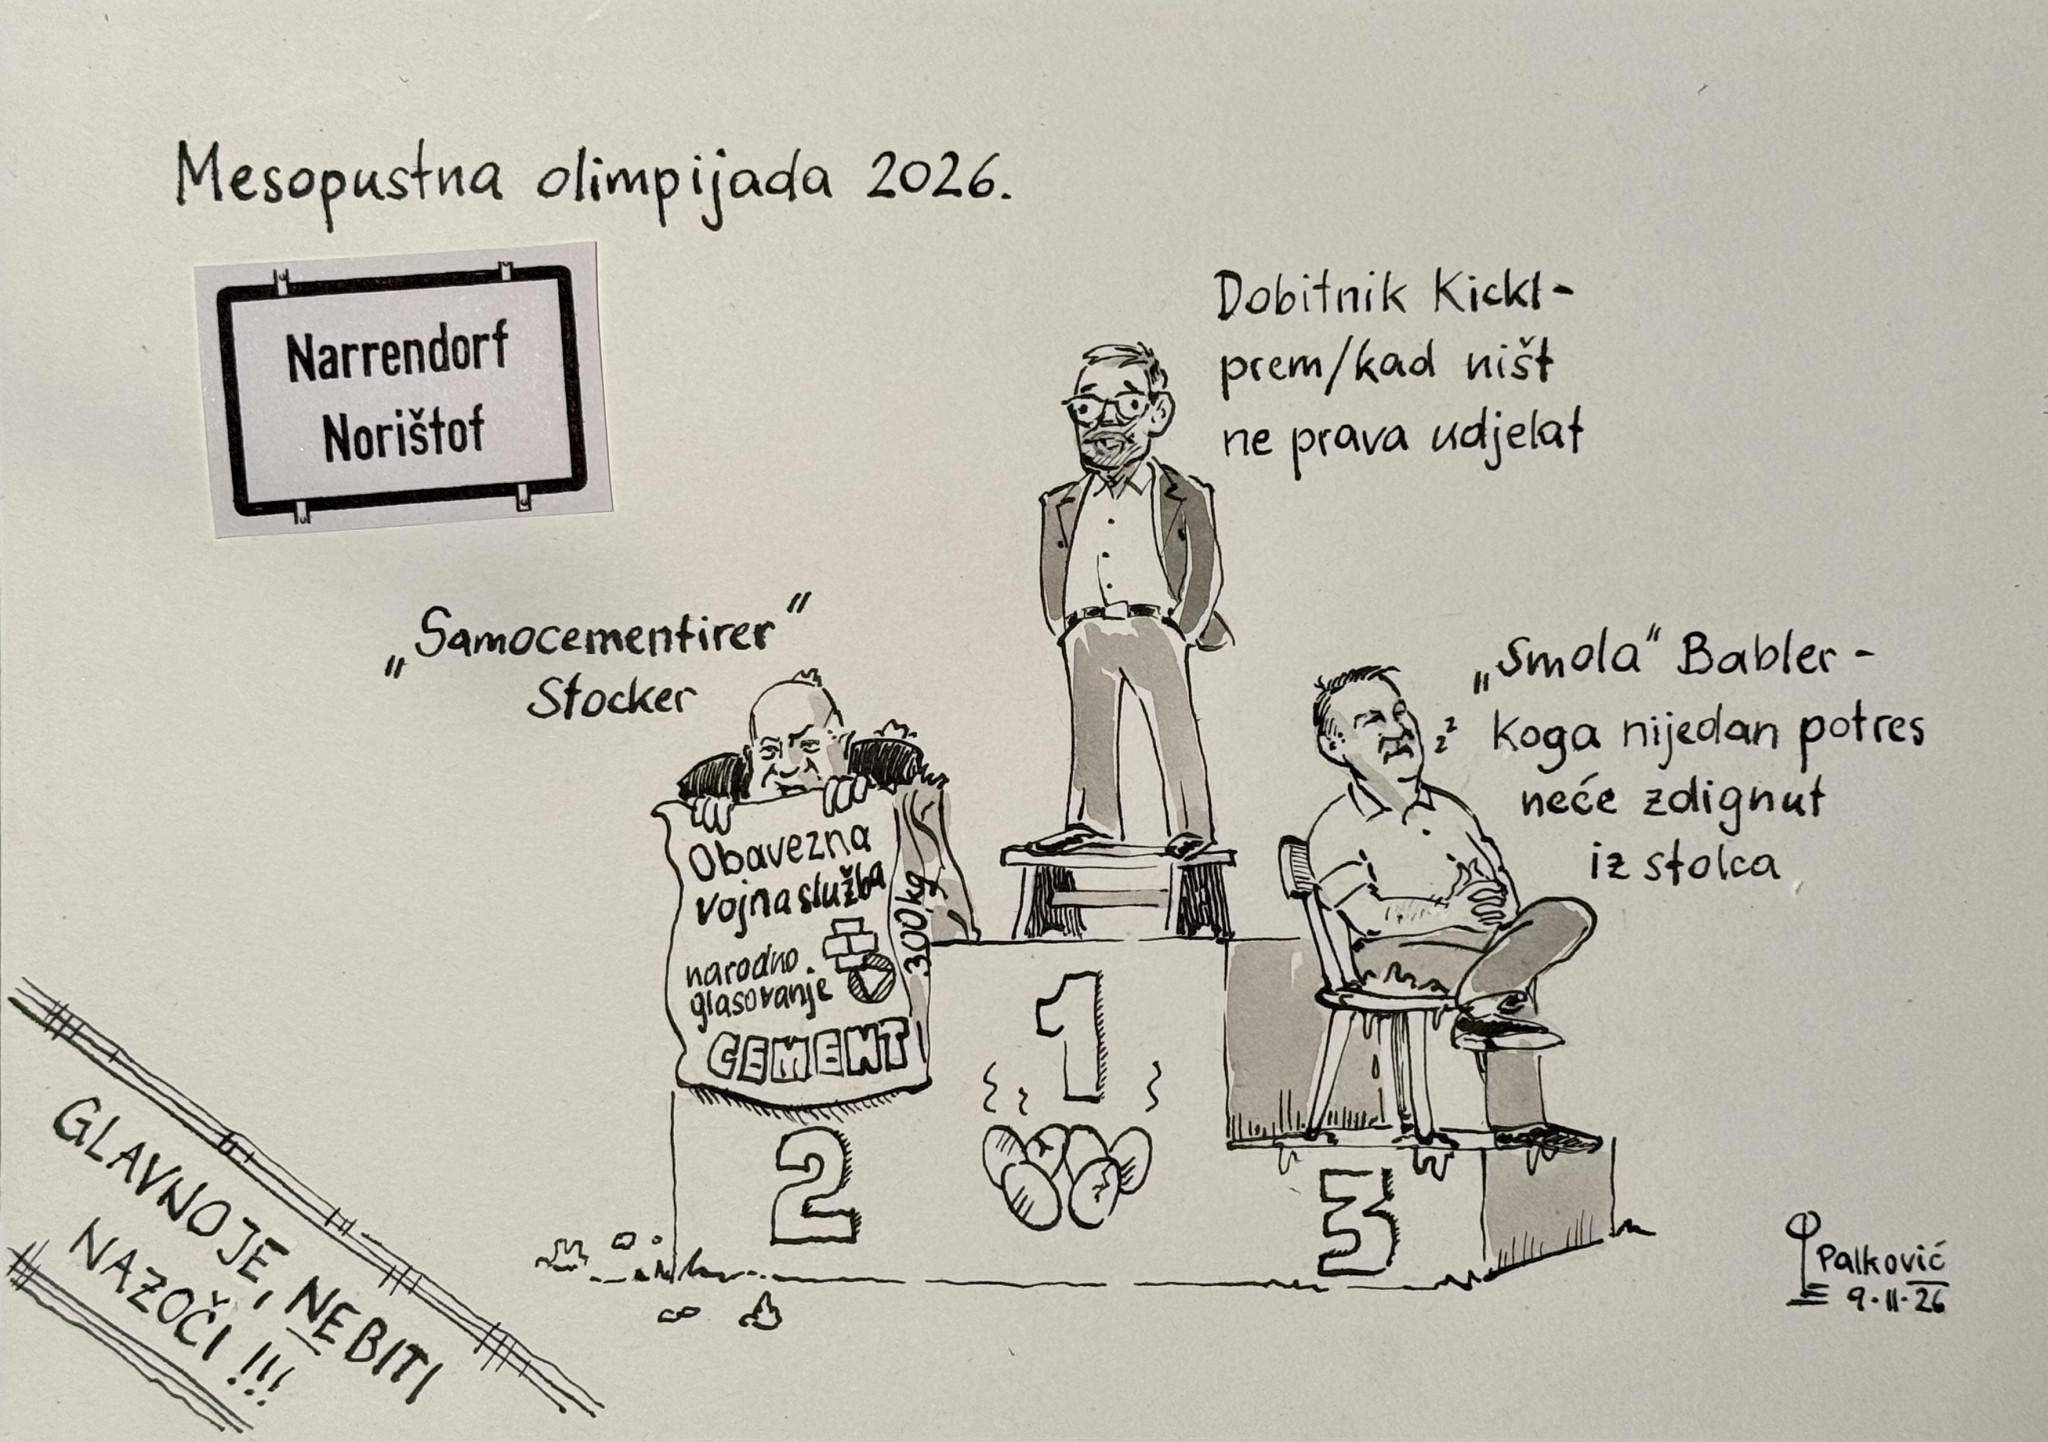 Mesopustna olimpijada 2026.
Narrendorf
Norištof
Dobitnik Kickl-
prem/kad ništ
ne prava udjelat
„Samocementirer“
Stocker
„Smola“ Babler -
koga nijedan potres
neće zdignut
iz stolca
zz
Obavezna
vojna služba
narodno
glasovanje
CEMENT
300kg
1
2
3
GLAVNO JE, NE BITI
NAZOČI !!!
Palković
9·II·26